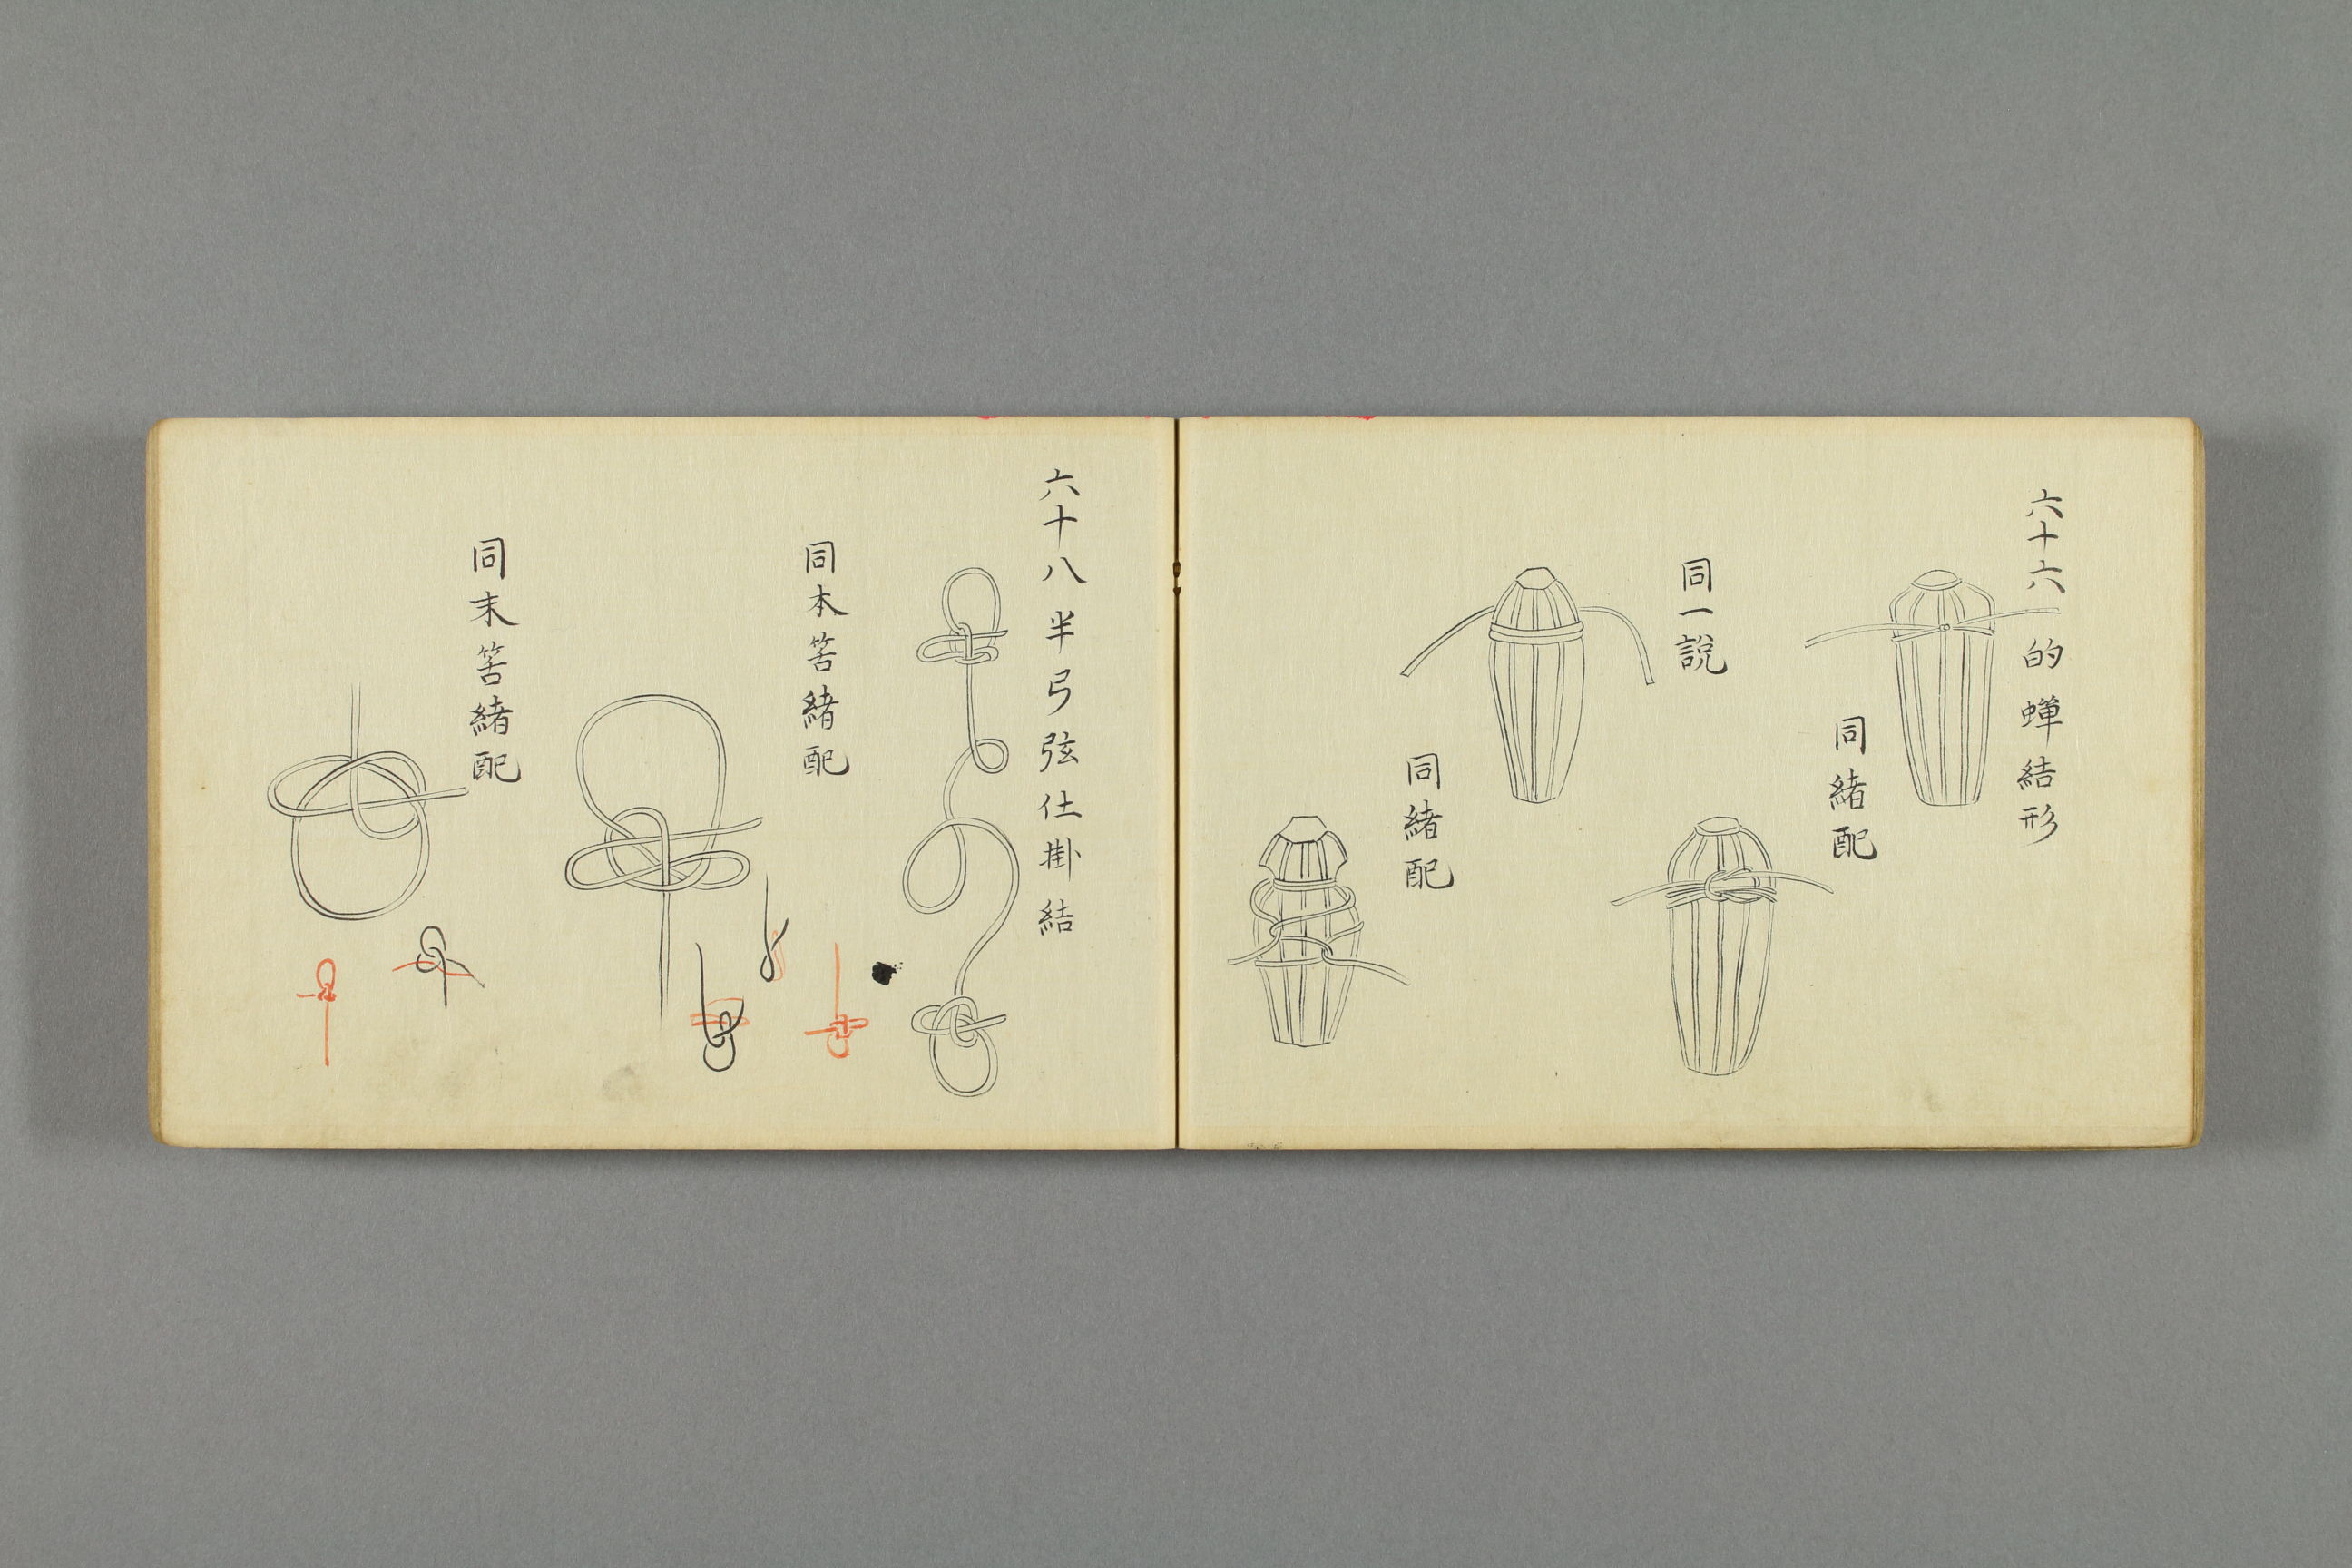 六十六 的蟬結形
同緒配
同一説
同緒配
六十八 半弓弦仕掛結
同本筈緒配
同末筈緒配